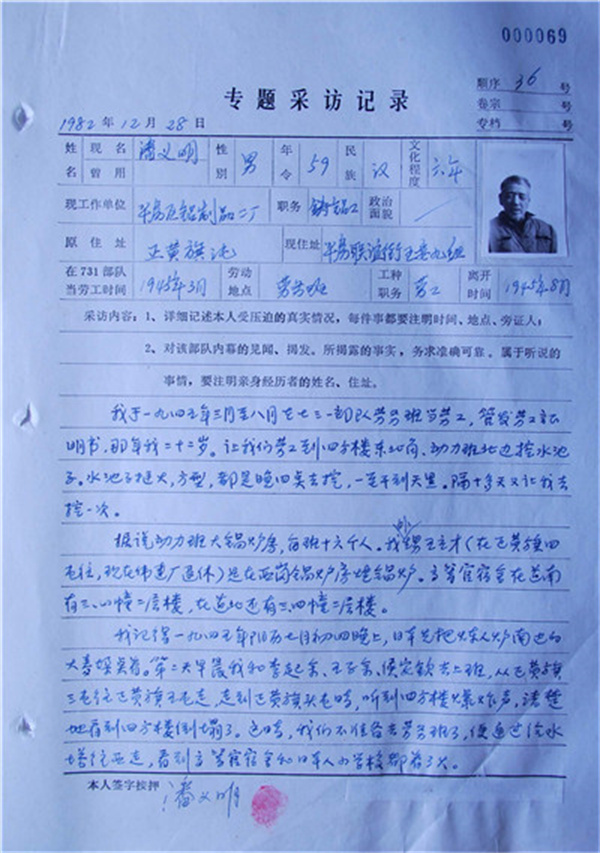 000069
专题采访记录
顺序 36 号
卷宗 号
专档 号
1982年12月28日
姓名 现名 潘义明 性别 男 年令 59 民族 汉 文化程度 六年
曾用
现工作单位 平房区铝制品二厂 职务 铸铝工 政治面貌
原住址 正黄旗屯 现住址 平房联谊街五委九组
在731部队当劳工时间 1945年3月 劳动地点 劳务班 工种职务 劳工 离开时间 1945年8月
采访内容：1、详细记述本人受压迫的真实情况，每件事都要注明时间、地点、旁证人；
2、对该部队内幕的见闻、揭发。所揭露的事实，务求准确可靠。属于听说的
事情，要注明亲身经历者的姓名、住址。
我于一九四五年三月至八月在七三一部队劳务班当劳工，管发劳工证
明书，那年我二十二岁。让我们劳工到四方楼东北角、动力班北边挖水池
子。水池子挺大，方型，都是晚四点去挖，一直干到天黑。隔十多天又让我去
挖一次。
据说动力班大锅炉房，每班十六个人。我
王才（在正黄旗四
屯住，现在伟建厂退休）是在西岗锅炉房烧锅炉。高等官宿舍在道南
有三、四幢二层楼，在道北还有三、四幢二层楼。
我记得一九四五年阴历七月初四晚上，日军先把火车火炉南边的
大草垛点着。第二天早晨我和李起
去上班，从正黄旗
三屯往正黄旗五屯走，走到正黄旗头屯时，听到四方楼爆炸声，清楚
地看到四方楼倒塌了。这时，我们不准备去劳务班了，便通过给水
塔往西走，看到高等官宿舍和日本人小学校都着了火。
本人签字按押：潘义明